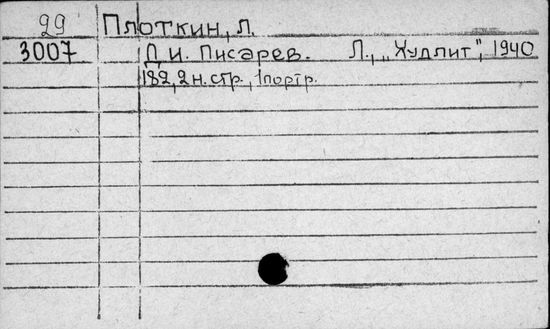 99 Плоткин, Л.
3007 Д. И. Писарев. Л., „Худлит", 1940
182, 2 н. стр., 1 портр.